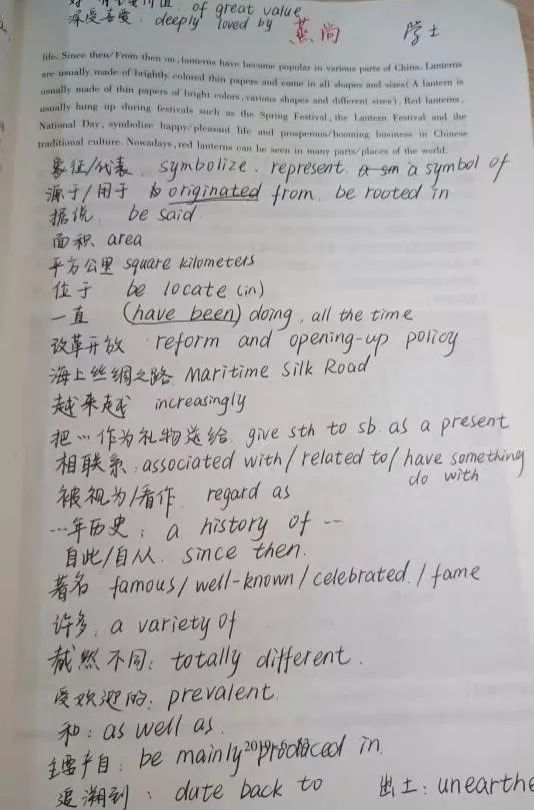 价值. of great value
深受喜爱: deeply loved by 燕尚 学士
life. Since then/From then on, lanterns have become popular in various parts of China. Lanterns
are usually made of brightly colored thin papers and come in all shapes and sizes( A lantern is
usually made of thin papers of bright colors, various shapes and different sizes). Red lanterns,
usually hung up during festivals such as the Spring Festival, the Lantern Festival and the
National Day, symbolize happy/pleasant life and prosperous/booming business in Chinese
traditional culture. Nowadays, red lanterns can be seen in many parts/places of the world.
象征/代表. symbolize. represent. a symbol of
源于/用于 originated from. be rooted in
据说. be said.
面积 area
平方公里 square kilometers
位于 be locate (in)
一直 (have been) doing. all the time
改革开放 reform and opening-up policy
海上丝绸之路 Maritime Silk Road
越来越 increasingly
把…作为礼物送给. give sth to sb. as a present
相联系: associated with/related to/have something
do with
被视为/看作. regard as
…年历史: a history of …
自此/自从. since then.
著名 famous/well-known/celebrated./fame
许多: a variety of
截然不同: totally different.
受欢迎的: prevalent.
和: as well as.
主要产自: be mainly produced in.
追溯到: date back to 出土: unearthe